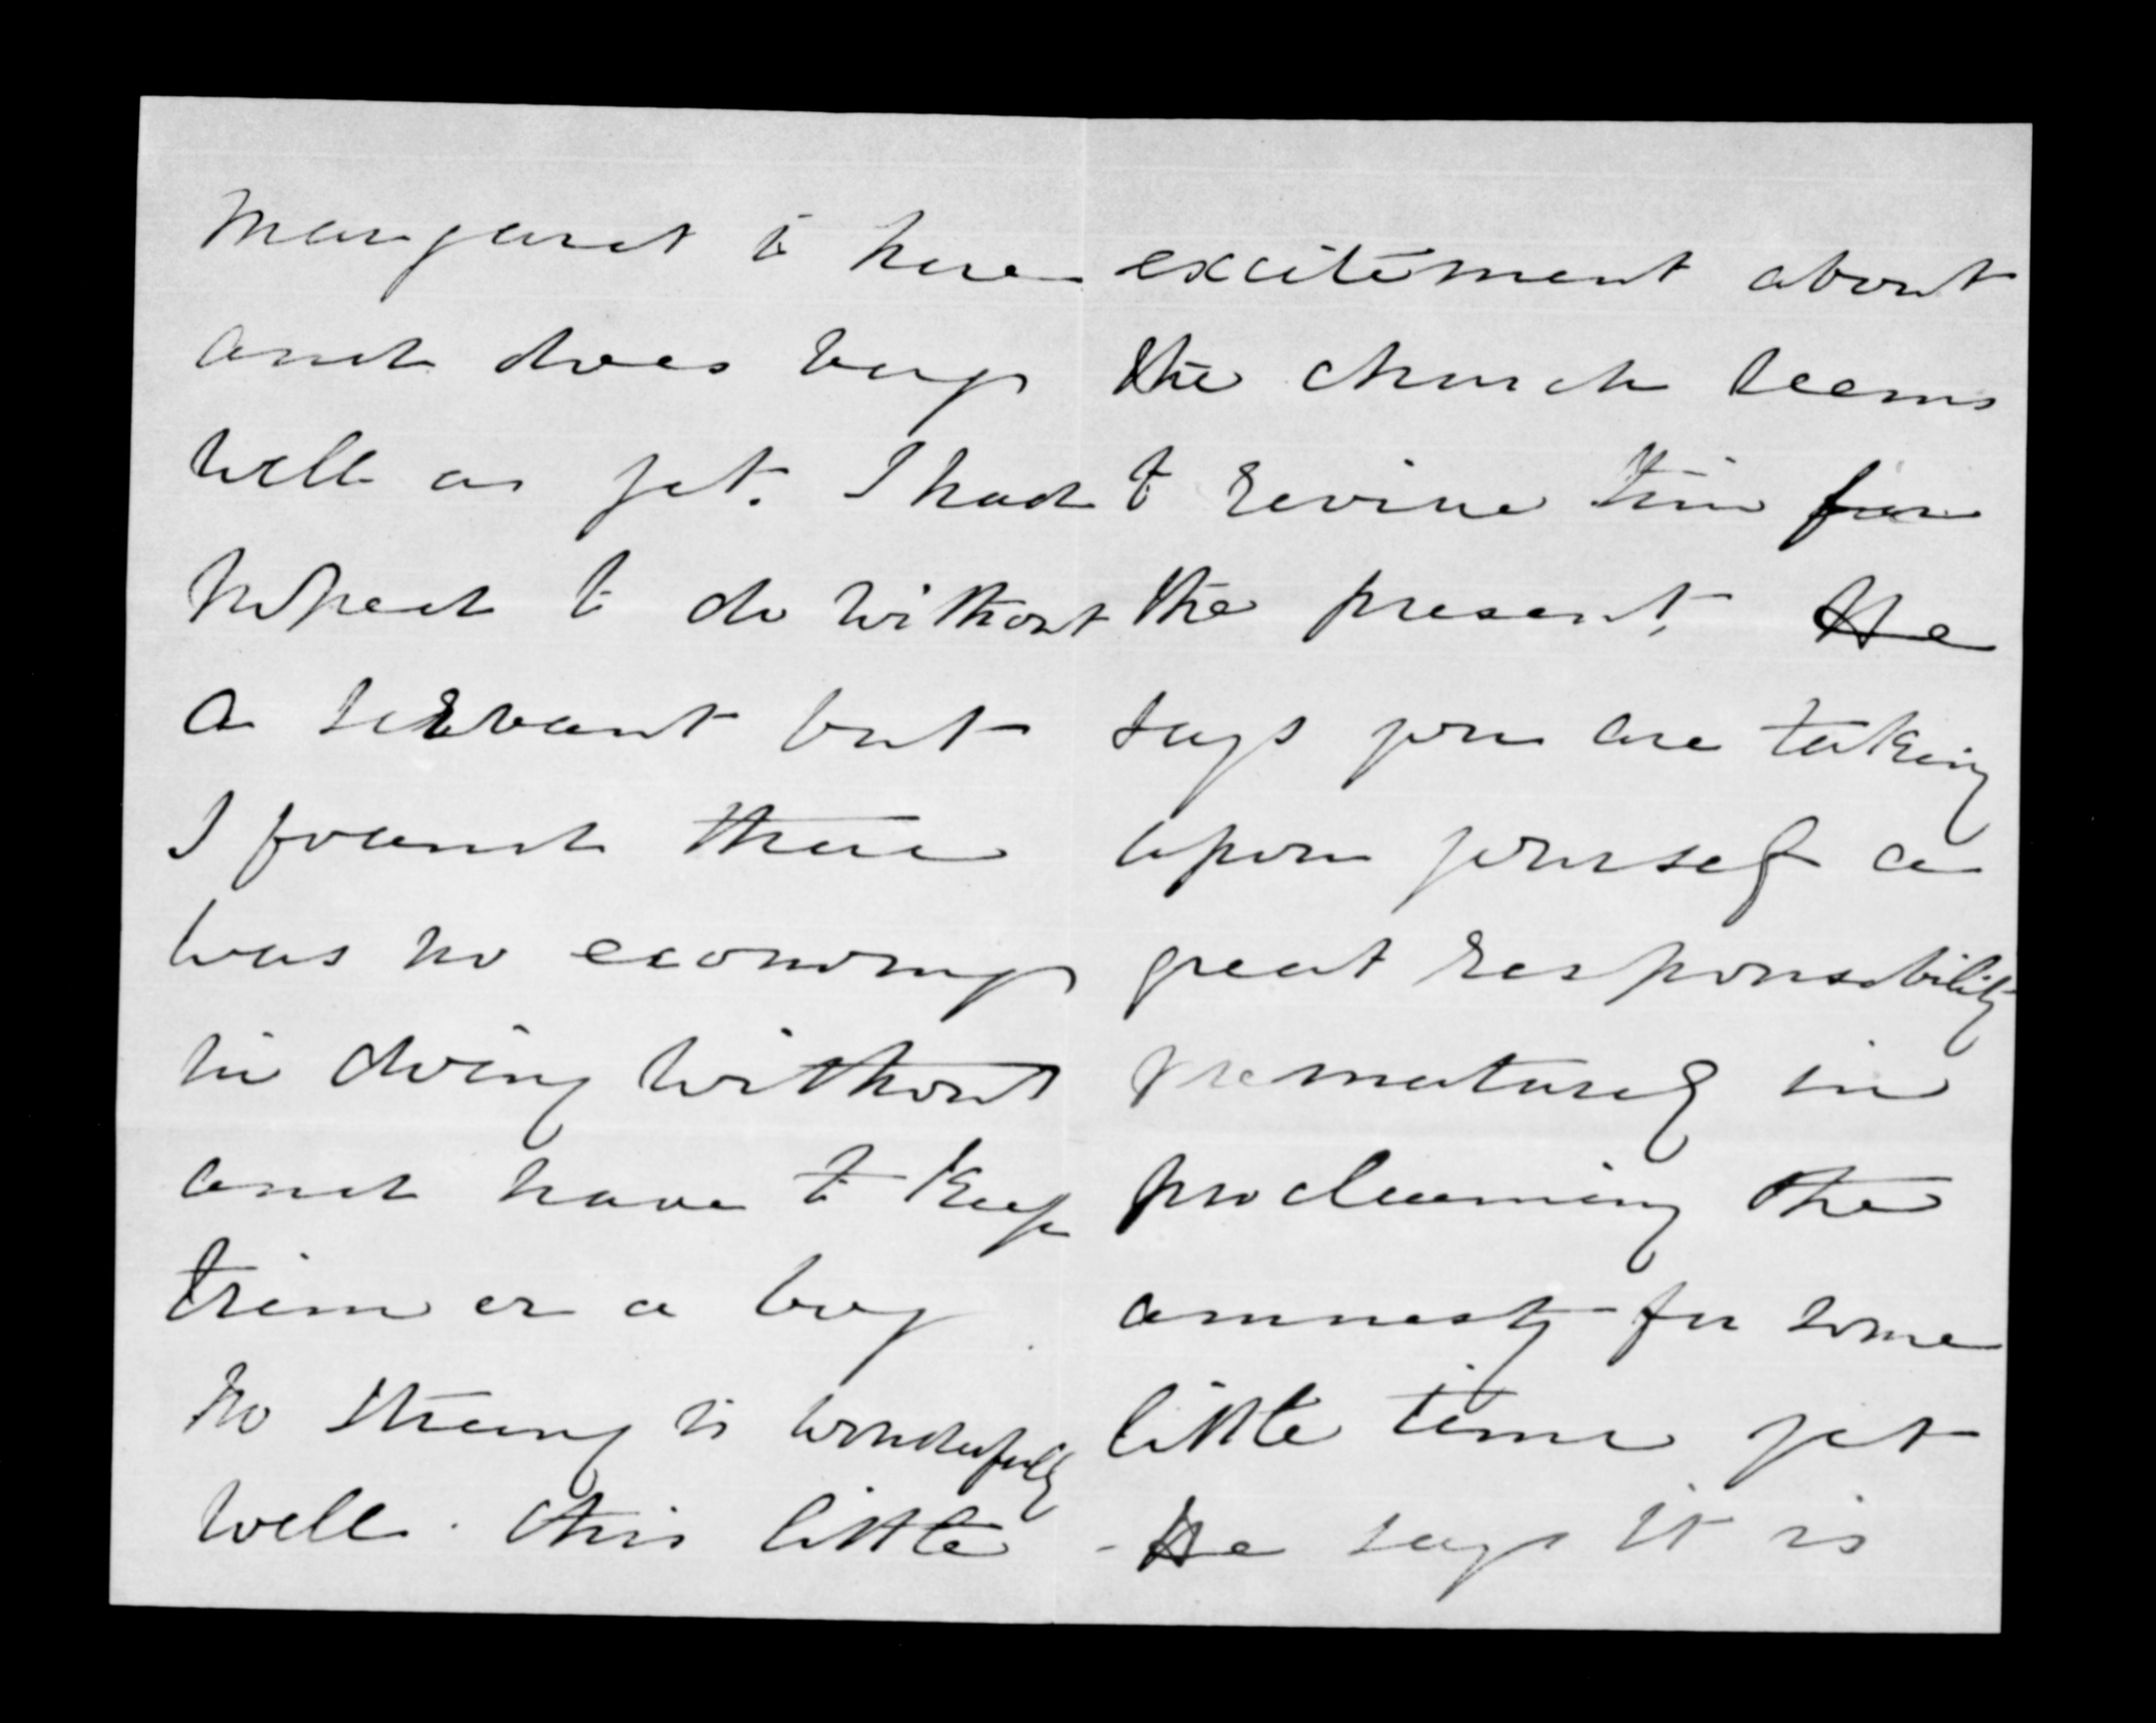 Margaret is here
and does very
well as yet. I had
hoped to do without
a servant but
I found there
was no economy
in doing without
and have to keep
or a boy
Mr Strong is wonderfully
well. this little
excitement about
the church seems
to revive him for
the present, He
says you are taking
upon yourself a
great responsibility
prematurely in
proclaiming the
amnesty for some
little time yet
- He says it is